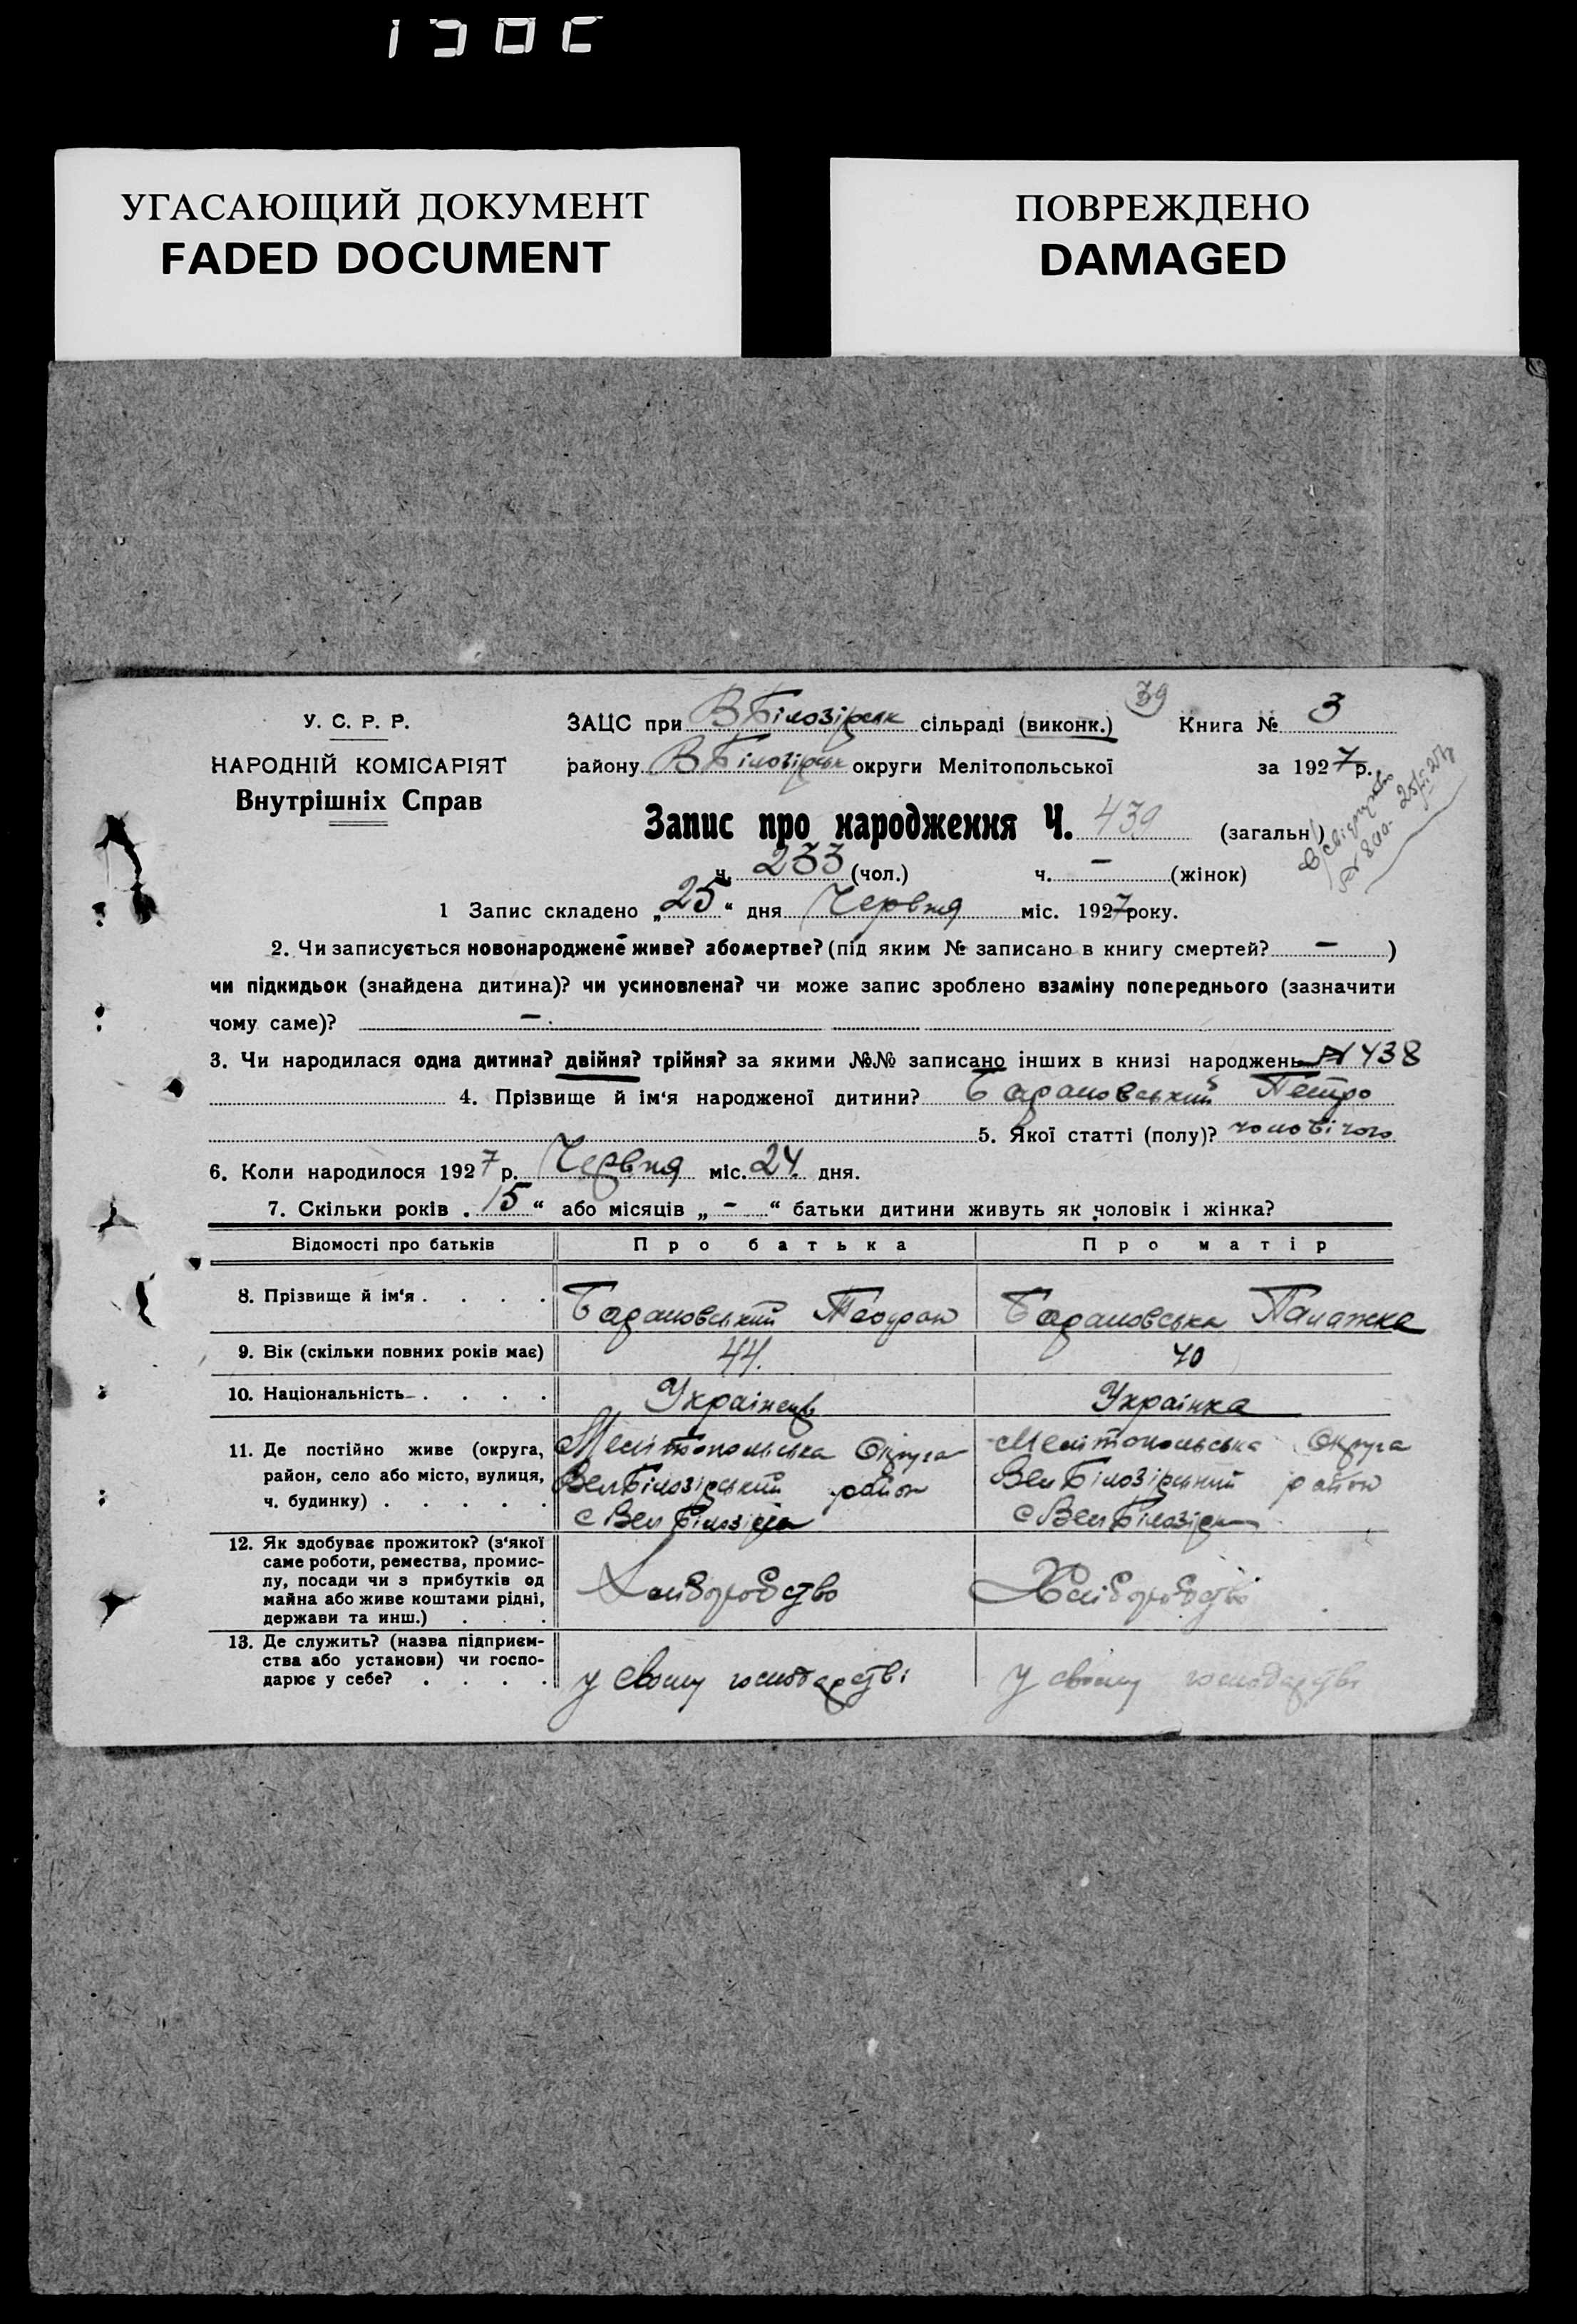 УГАСАЮЩИЙ ДОКУМЕНТ
FADED DOCUMENT
ПОВРЕЖДЕНО
DAMAGED
39
У. С. Р. Р.
НАРОДНІЙ КОМІСАРІЯТ
Внутрішніх Справ
ЗАЦС при В Білозірськ сільраді (виконк.) Книга № 3
району В Білозірськ округи Мелітопольської за 1927 р.
Запис про народження Ч. 439 (загальн)
ч. 233 (чол.) ч. — (жінок)
1 Запис складено „25“ дня Червня міс. 1927 року.
2. Чи записується новонароджене живе? або мертве? (під яким № записано в книгу смертей? — )
чи підкидьок (знайдена дитина)? чи усиновлена? чи може запис зроблено взаміну попереднього (зазначити
чому саме)? —
3. Чи народилася одна дитина? двійня? трійня? за якими №№ записано інших в книзі народжень № 438
4. Прізвище й ім‘я народженої дитини? Барановський Петро
5. Якої статті (полу)? чоловічого
6. Коли народилося 1927 р. Червня міс. 24 дня.
7. Скільки років „15“ або місяців „ - “ батьки дитини живуть як чоловік і жінка?
Відомості про батьків Про батька Про матір
8. Прізвище й ім‘я . . . . Барановський Барановська Палажка
9. Вік (скільки повних років має) 44. 40
10. Національність . . . . Українець Українка
11. Де постійно живе (округа, Мелітопольська Округа Мелітопольська Округа
район, село або місто, вулиця, Вел Білозірський район Вел Білозірський район
ч. будинку) . . . . . с Вел Білозірка с Вел Білозірка
12. Як здобуває прожиток? (з‘якої
саме роботи, ремества, промис-
лу, посади чи з прибутків од Хліборобство Хліборобство
майна або живе коштами рідні,
держави та инш.) . . .
13. Де служить? (назва підприєм-
ства або установи) чи госпо-
дарює у себе? . . . . у свому господарстві у свому господарстві